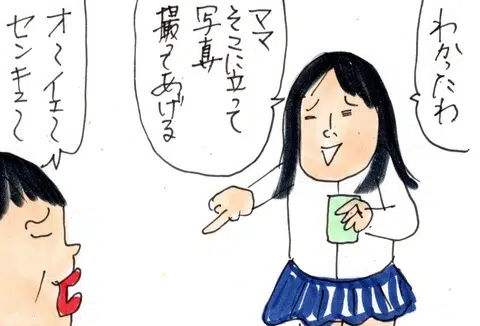 わかったわ
ママ
そこに立って
写真
撮ってあげる
オ〜イエ〜
センキュ〜